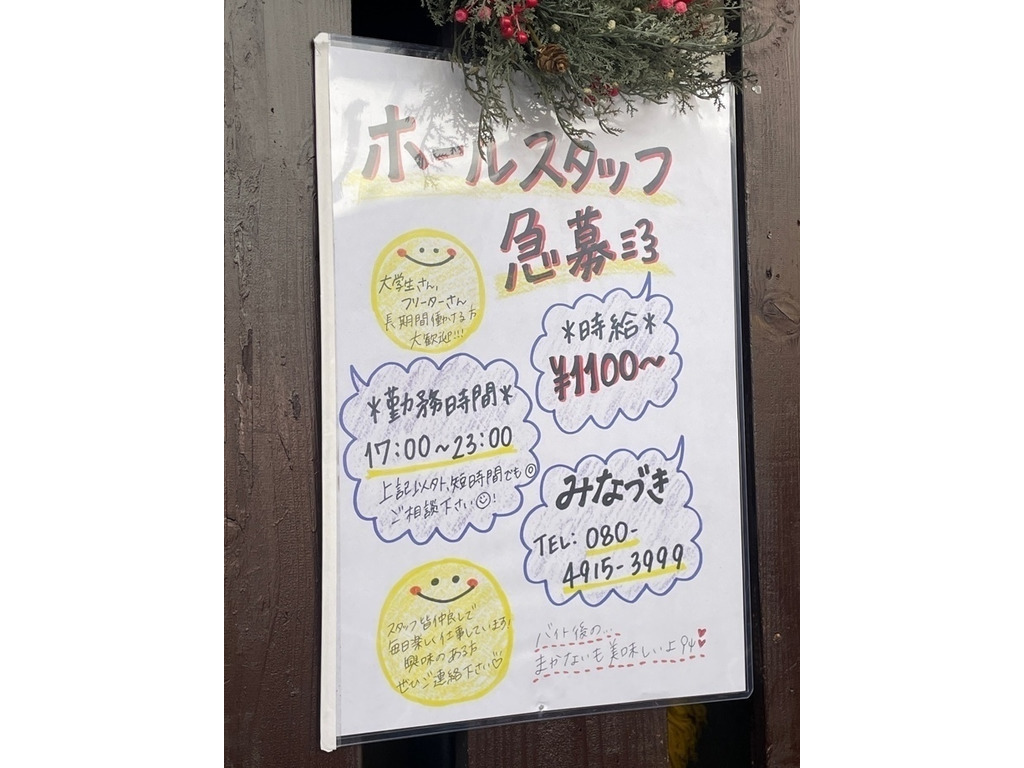 ホールスタッフ
急募
大学生さん、
フリーターさん
長期間働ける方
大歓迎!!!
*時給*
¥1100~
*勤務時間*
17:00~23:00
上記以外、短時間でも
ご相談下さい!
みなづき
TEL: 080-
4915-3999
スタッフ皆仲良しで
毎日楽しく仕事しています!
興味のある方
ぜひご連絡下さい♡
バイト後の...
まかないも美味しい上